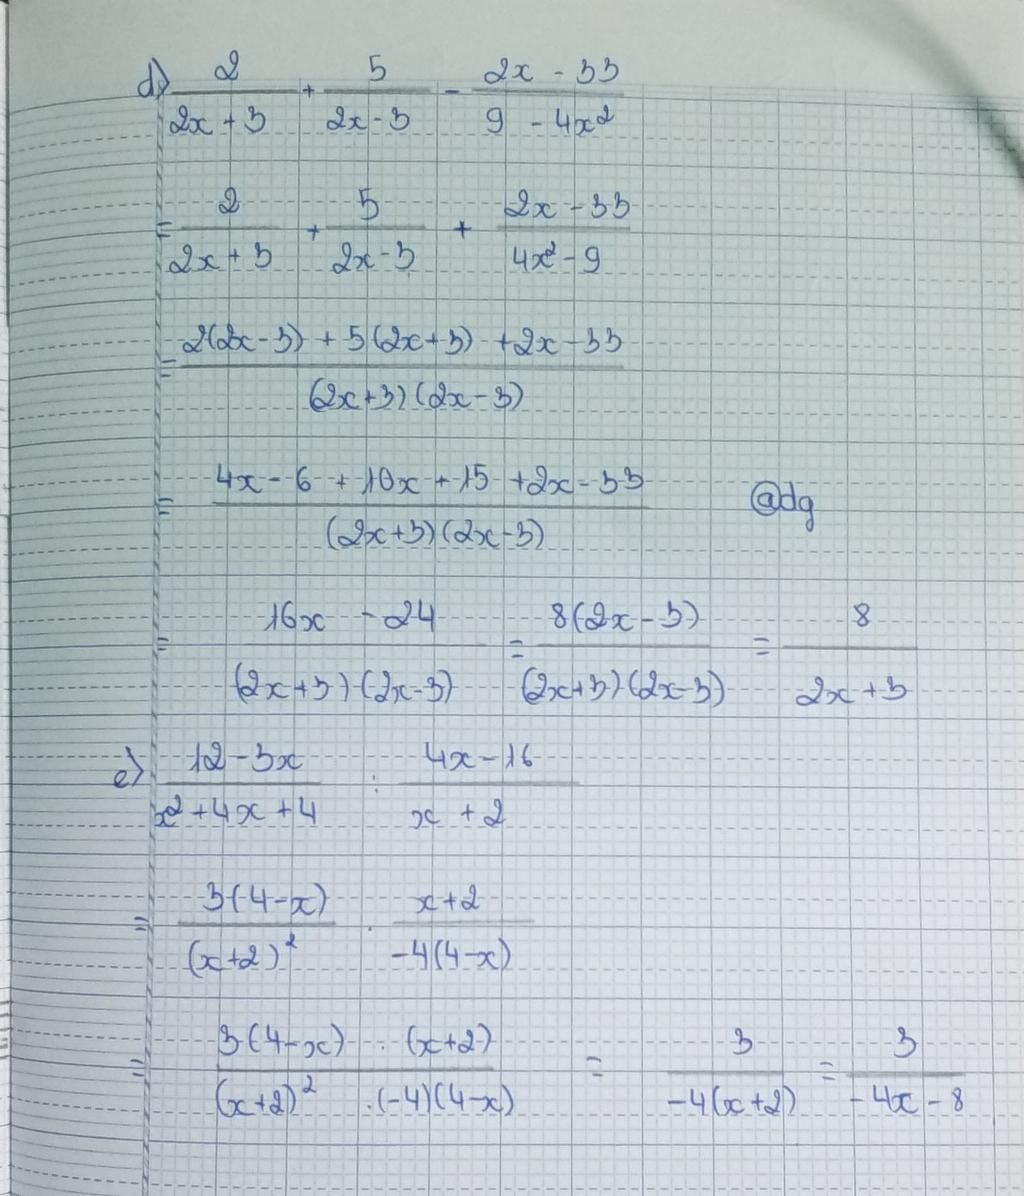 d) 2/(2x + 3) + 5/(2x - 3) - (2x - 33)/(9 - 4x²)
= 2/(2x + 3) + 5/(2x - 3) + (2x - 33)/(4x² - 9)
= (2(2x - 3) + 5(2x + 3) + 2x - 33)/((2x + 3)(2x - 3))
= (4x - 6 + 10x + 15 + 2x - 33)/((2x + 3)(2x - 3)) @dg
= (16x - 24)/((2x + 3)(2x - 3)) = 8(2x - 3)/((2x + 3)(2x - 3)) = 8/(2x + 3)
e) (12 - 3x)/(x² + 4x + 4) : (4x - 16)/(x + 2)
= 3(4 - x)/(x + 2)² . (x + 2)/(-4(4 - x))
= (3(4 - x) . (x + 2))/((x + 2)² . (-4)(4 - x)) = 3/(-4(x + 2)) = 3/(-4x - 8)